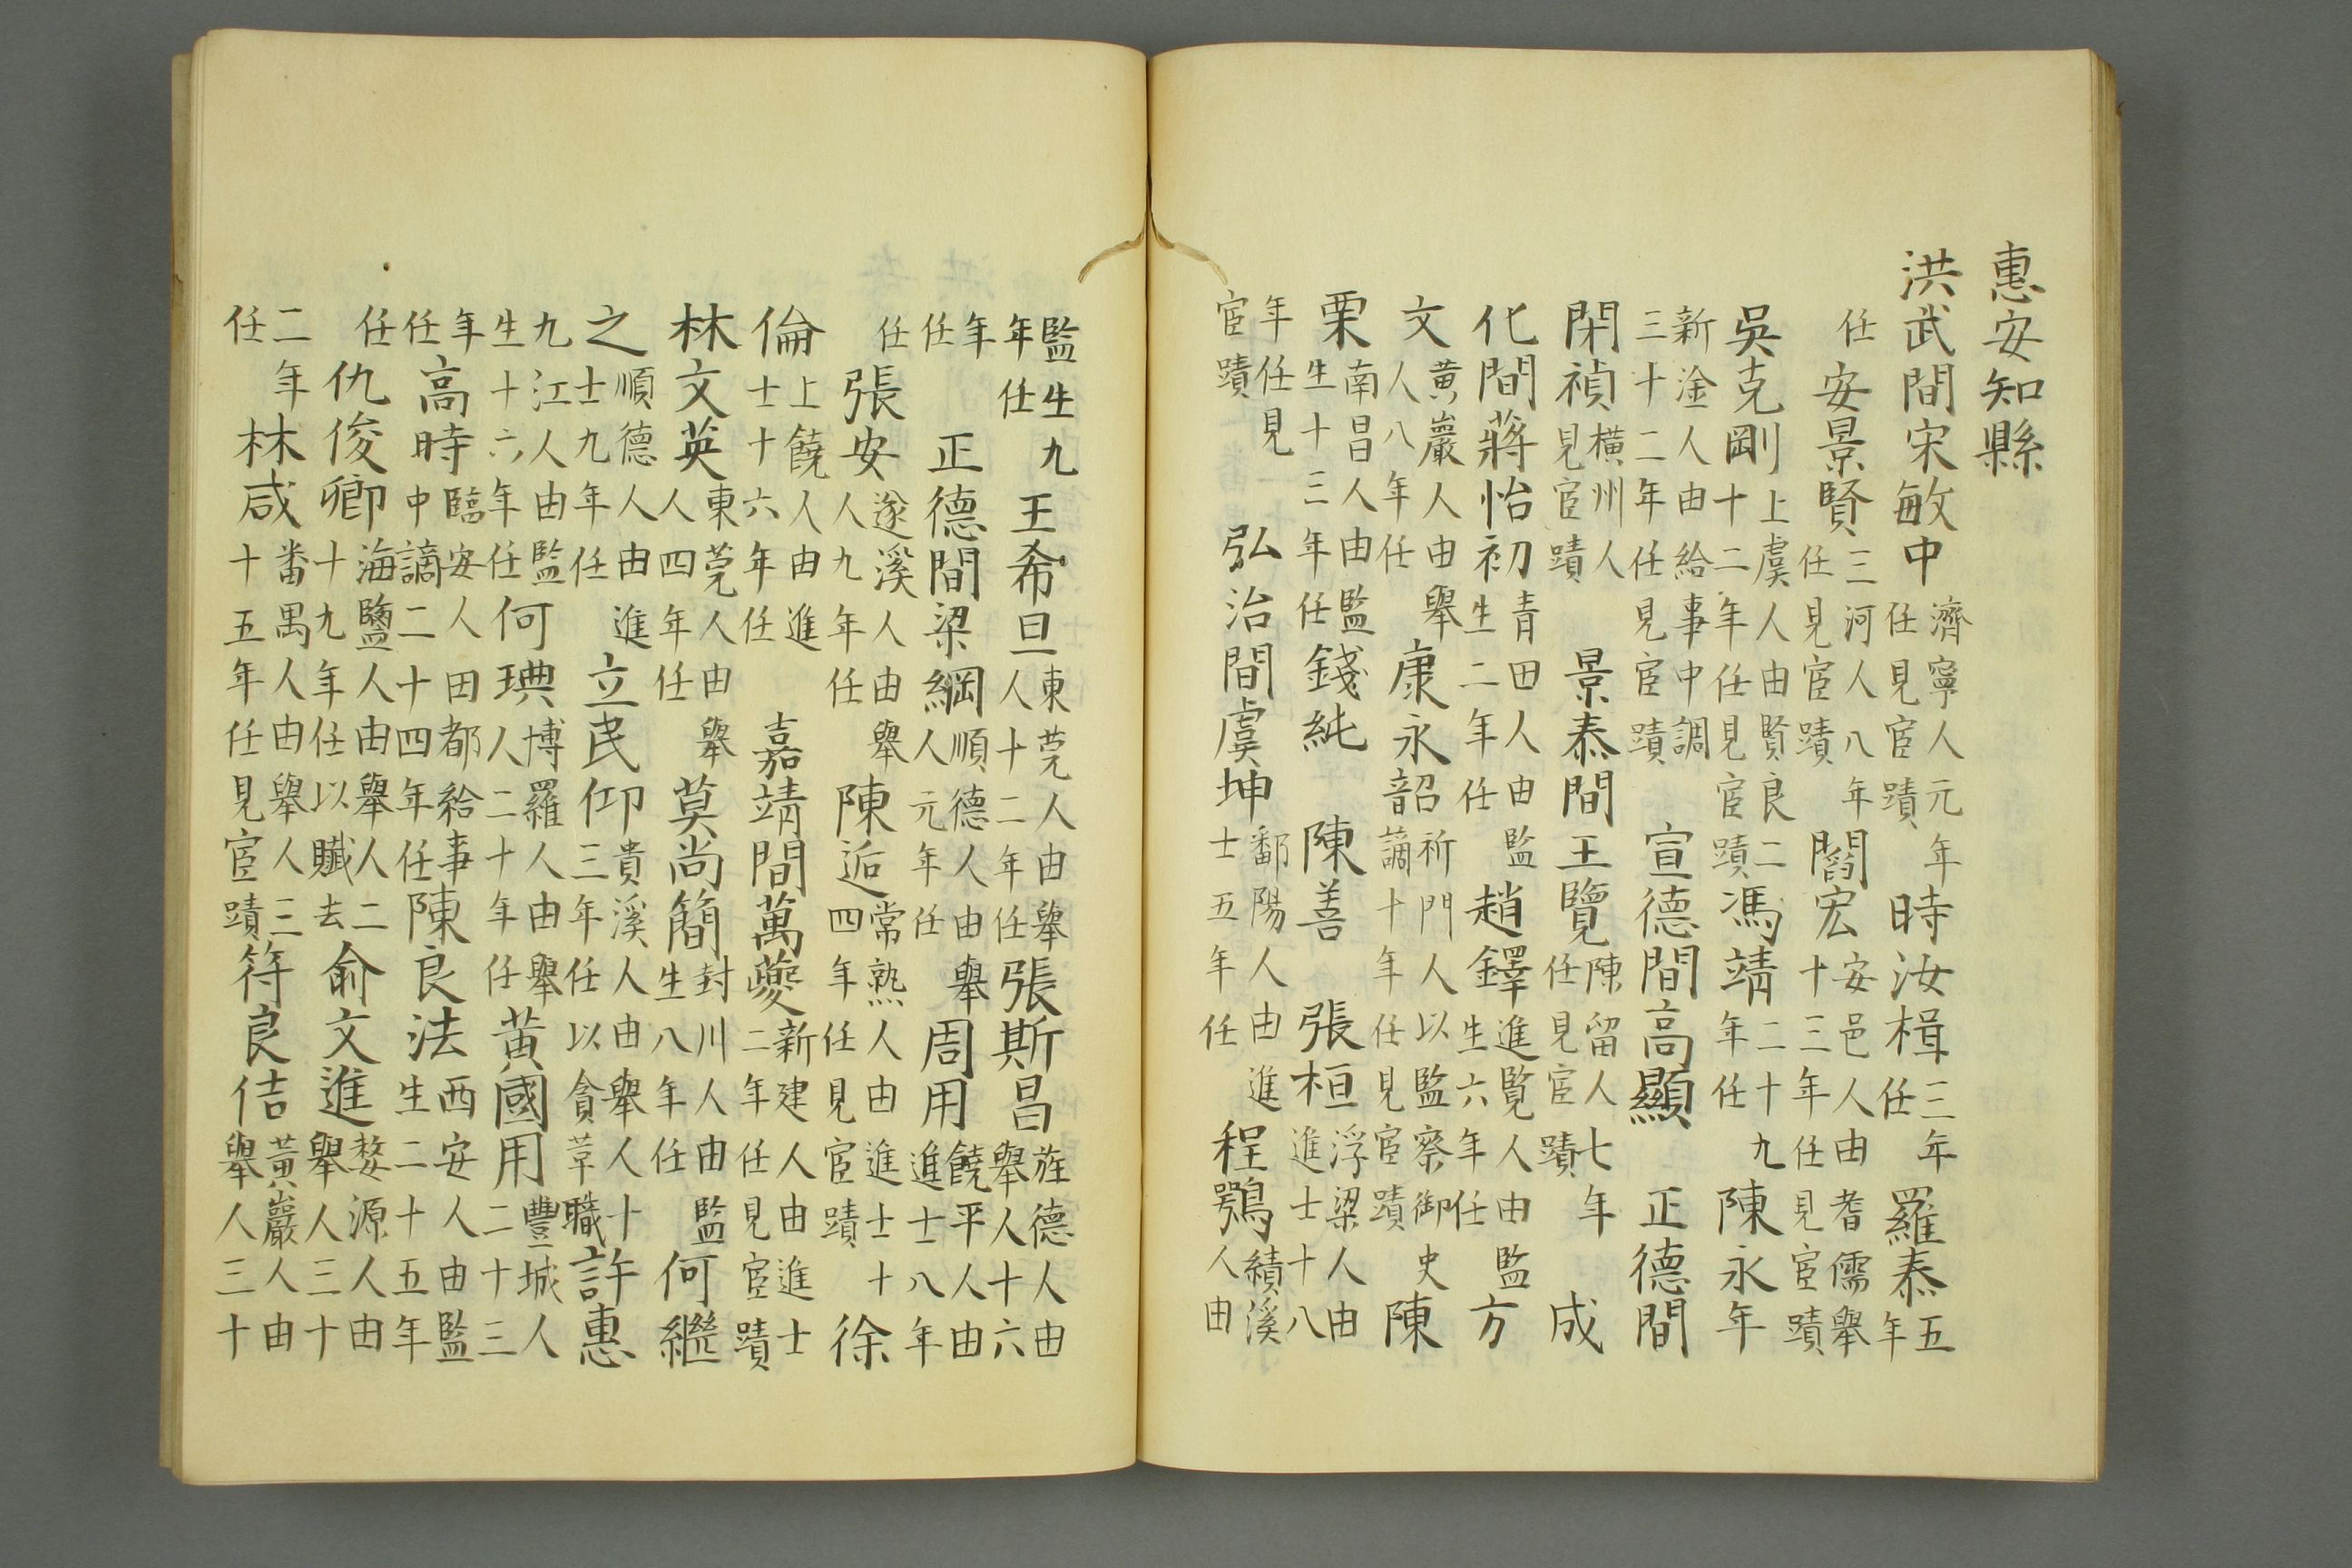 惠安知縣
洪武間宋敏中濟寧人元年任見宦蹟時汝楫三年任羅泰五年
任安景賢三河人八年任見宦蹟閻宏安邑人由耆儒舉十三年任見宦蹟
吳克剛上虞人由賢良二十二年任見宦蹟馮靖二十九年任陳永年
新淦人由給事中調三十二年任見宦蹟宣德間高顯正德間
閑禎橫州人見宦蹟景泰間王覽陳留人七年任見宦蹟成
化間蔣怡初青田人由監生二年任趙鐸進覽人由監生六年任方
文黃巖人由舉人八年任康永韶祈門人以監察御史謫十年任見宦蹟陳
栗南昌人由監生十三年任錢純陳善張桓浮梁人由進士十八
年任見宦蹟弘治間虞坤鄱陽人由進士五年任程鶚績溪人由
監生九年任王希旦東莞人由舉人十二年任張斯昌旌德人由舉人十六
年任正德間梁綱順德人由舉人元年任周用饒平人由進士八年
任張安遂溪人由舉人九年任陳逅常熟人由進士十四年任見宦蹟徐
倫上饒人由進士十六年任嘉靖間萬夔新建人由進士二年任見宦蹟
林文英東莞人由舉人四年任莫尚簡封川人由監生八年任何繼
之順德人由進士九年任立民仰貴溪人由舉人十三年任以貪革職許惠
九江人由監生十六年任何琠博羅人由舉人二十年任黃國用豐城人二十三
年任高時臨安人田都給事中謫二十四年任陳良法西安人由監生二十五年
任仇俊卿海鹽人由舉人二十九年任以贓去俞文進婺源人由舉人三十
二年任林咸番禺人由舉人三十五年任見宦蹟符良佶黃巖人由舉人三十